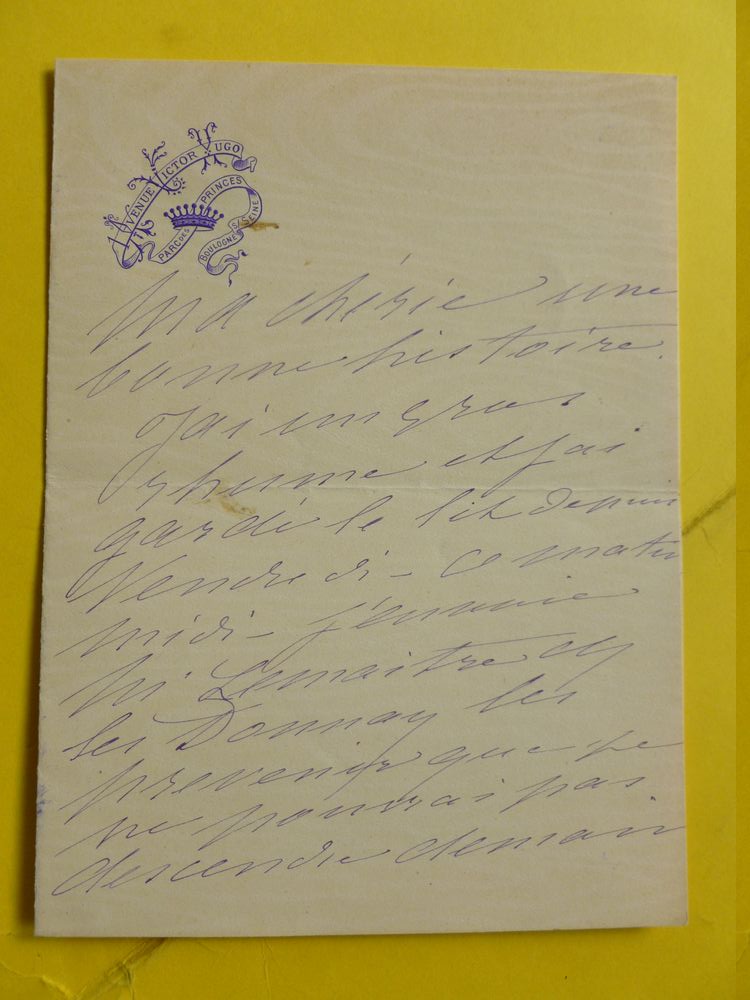 AVENUE VICTOR HUGO
PARC DES PRINCES
BOULOGNE S/SEINE
Ma chérie une
bonne histoire.
J'ai un gros
rhume et j'ai
gardé le lit depuis
Vendredi - ce matin
midi - j'envoie
M. Lemaitre
les Donnay les
prevenir que je
ne pourrai pas
descendre demain